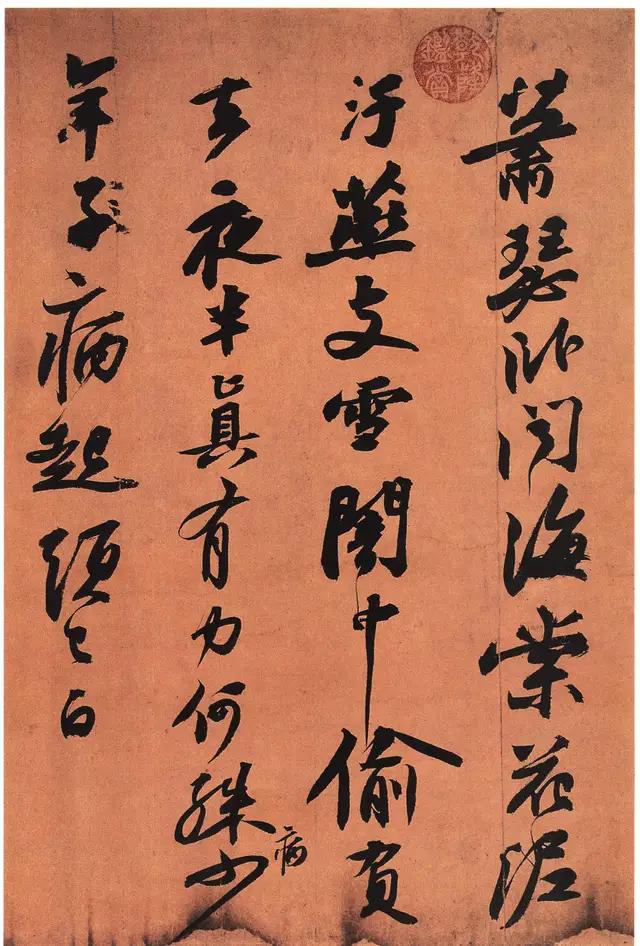 蕭瑟臥聞海棠花泥
汙燕支雪闇中偷負
去夜半真有力何殊病少
年子病起須已白
乾隆鑑賞